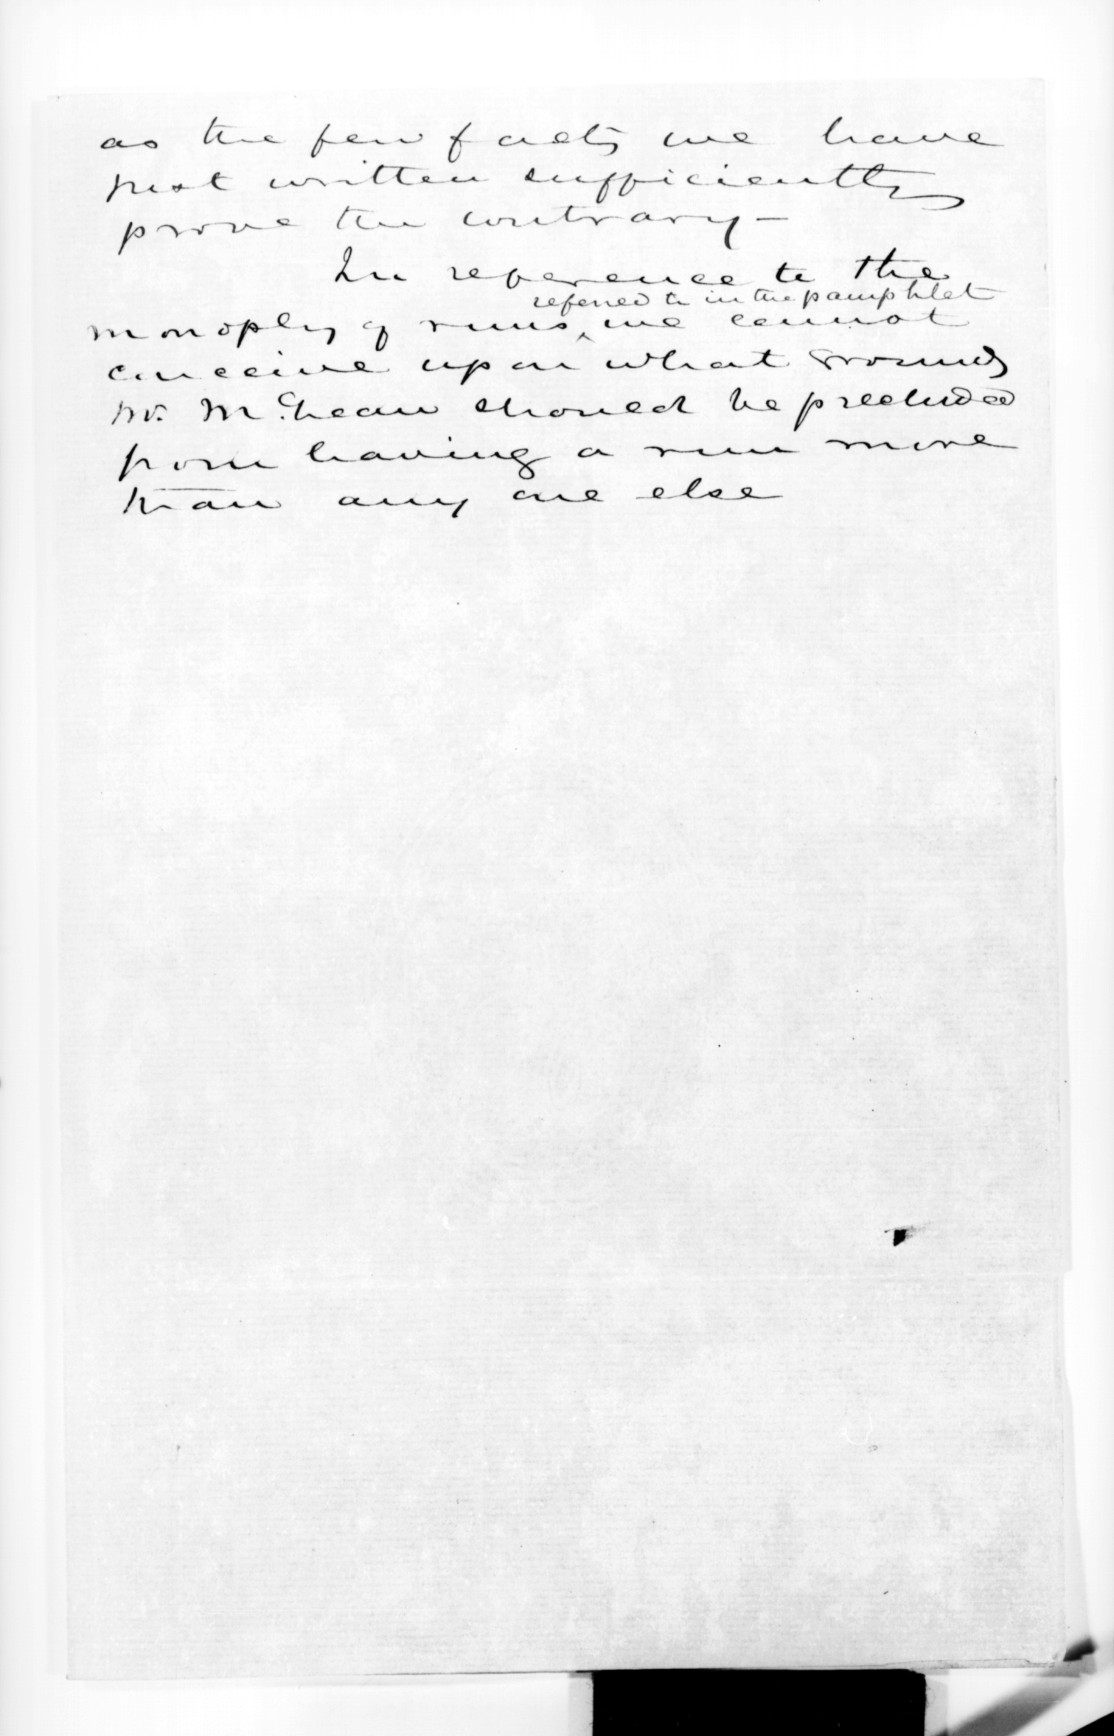 as the few facts we have
just written sufficiently
prove the contrary -
In reference to the
referred to in the pamphlet
monoply of runs, we cannot
conceive upon what grounds
Mr. McLean should be precluded
from having a run more
than any one else